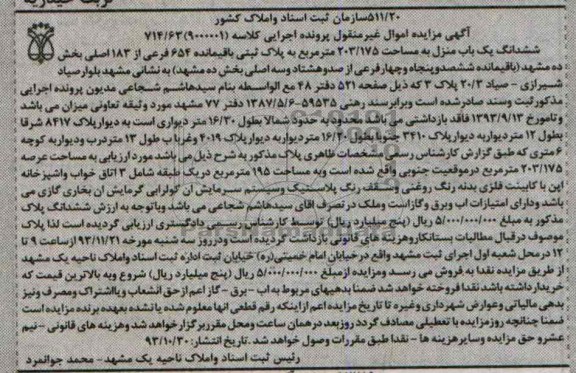 ۵۱۱/۲۰سازمان ثبت اسناد واملاک کشور
آگهی مزایده اموال غیرمنقول پرونده اجرایی کلاسه (۹۰۰۰۰۰۱)۷۱۴/۶۳
ششدانگ یک باب منزل به مساحت ۲۰۳/۱۷۵ مترمربع به پلاک ثبتی باقیمانده ۶۵۴ فرعی از ۱۸۳ اصلی بخش
ده مشهد (باقیمانده ششصدوپنجاه وچهارفرعی از صدوهشتاد وسه اصلی بخش ده مشهد) به نشانی مشهد بلوارصیاد
شیرازی - صیاد ۲۰/۳ پلاک ۳ که ذیل صفحه ۵۲۱ دفتر ۴۸ مع الواسطه بنام سیدهاشم شجاعی مدیون پرونده اجرایی
مذکور ثبت وسند صادرشده است وبرابرسند رهنی ۵۹۵۳۵-۱۳۸۷/۵/۶ دفتر ۷۷ مشهد مورد وثیقه تعاونی میزان می باشد
وتامورخ ۱۳۹۳/۹/۱۲ فاقد بازداشتی می باشد، محدود به حدود: شمالا بطول ۱۶/۳۰ متر دیواری است به دیوارپلاک ۸۴۱۷ شرقا
بطول ۱۲ متردیواربه دیوارپلاک ۳۴۱۰ جنوبا بطول ۱۶/۴۰ متردیواربه دیوارپلاک ۴۰۱۹ وغربا ب طول ۱۳ متردرب ودیواربه کوچه
۶متری که طبق گزارش کارشناس رسمی مشخصات ظاهری پلاک مذکور به شرح ذیل می باشد موردارزیابی به مساحت عرصه
۲۰۳/۱۷۵ مترمربع درموقعیت جنوبی واقع شده است وبه مساحت ۱۹۵ مترمربع دریک طبقه شامل ۳ اتاق خواب واشپزخانه
اپن با کابینت فلزی بدنه رنگ روغنی و سقف رنگ پلاستیک وسیستم سرمایش آن کولرآبی گرمایش آن بخاری گازی می
باشد ودارای امتیازات اب وبرق وگازاست وملک در تصرف اقای سیدهاشم شجاعی می باشد وباتوجه به ارزش ششدانگ پلاک
مذکور به مبلغ ۵/۰۰۰/۰۰۰/۰۰۰ ریال (پنج میلیارد ریال) توسط کارشناس رسمی دادگستری ارزیابی گردیده است لذا پلاک
موصوف درقبال مطالبات بستانکاروهزینه های قانونی بازداشت گردیده است ودرروز سه شنبه مورخه ۹۳/۱۱/۲۱ ازساعت ۹ تا
۱۲ درمحل شعبه اول اجرای ثبت مشهد واقع درخیابان امام خمینی(ره) خیابان ثبت اداره ثبت اسناد واملاک ناحیه یک مشهد
از طریق مزایده نقدا به فروش می رسد ومزایده ازمبلغ ۵/۰۰۰/۰۰۰/۰۰۰ ریال (پنج میلیارد ریال) شروع وبه بالاترین قیمت که
خریدار داشته باشد نقدا فروخته خواهد شد ضمنا بدهیهای مربوط به اب - برق - گاز اعم ازحق انشعاب ویااشتراک ومصرف ونیز
بدهی مالیاتی وعوارض شهرداری وغیره تا تاریخ مزایده اعم ازاینکه رقم قطعی انها معلوم شده یانشده بعهده برنده مزایده است
ضمنا چنانچه روزمزایده با تعطیلی مصادف گردد روزبعد درهمان ساعت ومحل مقرربرگزارخواهد شد وهزینه های قانونی - نیم
عشرو حق مزایده وسایرهزینه ها - نقدا طبق مقررات وصول خواهد شد. تاریخ انتشار: ۹۳/۱۰/۳۰
رئیس ثبت اسناد واملاک ناحیه یک مشهد- محمد جوانمرد